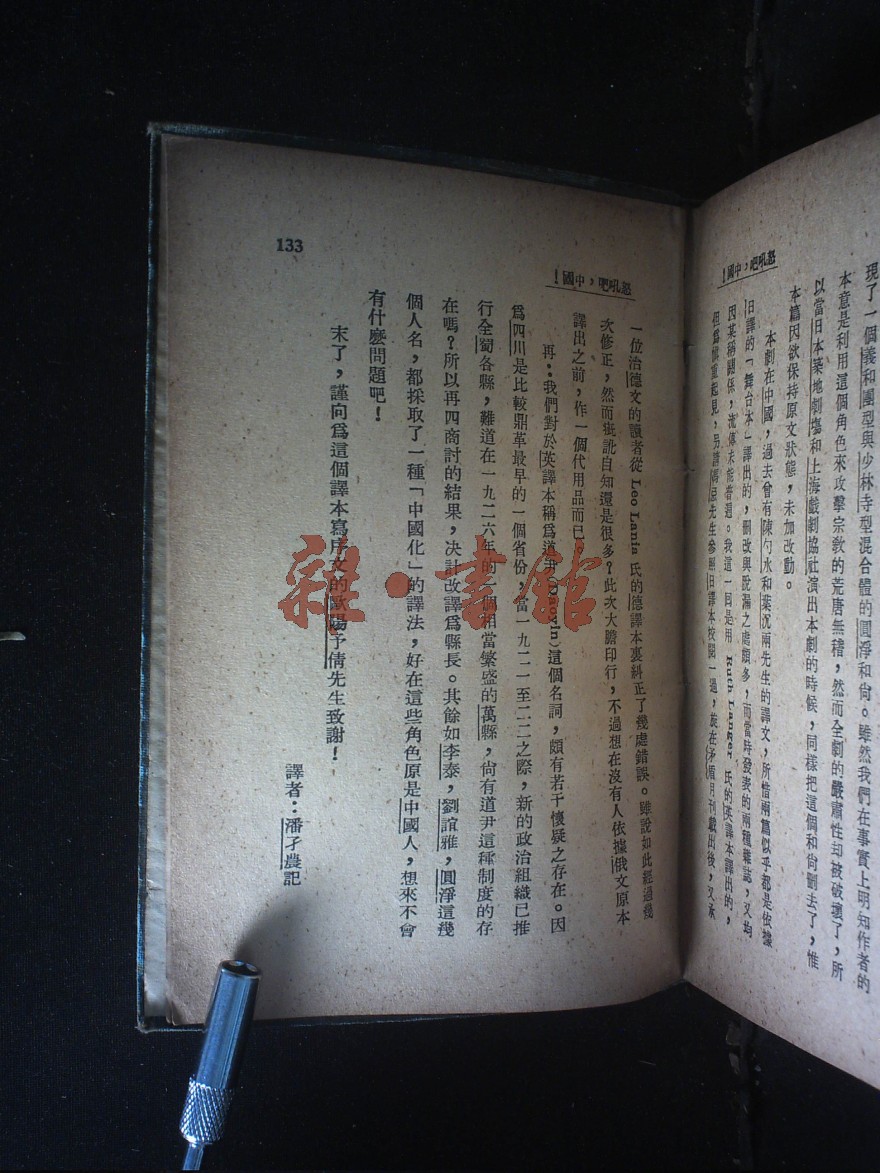 怒吼吧，中國！
現了一個義和團型與少林寺型混合體的圓淨和尙。雖然我們在事實上明知作者的
本意是利用這個角色來攻擊宗敎的荒唐無稽，然而全劇的嚴肅性却被破壞了，所
以當日本築地劇塲和上海戲劇協社演出本劇的時候，同樣把這個和尙删去了，惟
本篇因欲保持原文狀態，未加改動。
本劇在中國，過去曾有陳勺水和葉沉兩先生的譯文，所惜兩篇似乎都是依據
日譯的「舞台本」譯出的，删改與脫漏之處頗多，而當時發表的兩種雜誌，又均
因某種關係，流傳未能普遍。我這一回是用 Ruth Langer 氏的英譯本譯出的，
但爲愼重起見，另請先生參照日譯本校閱一過，旋在矛盾月刊載出後，又承
怒吼吧，中國！
一位治德文的讀者從 Leo Lania 氏的德譯本裏糾正了幾處錯誤。雖說如此經過幾
次修正，然而訛自知還是很多？此次大膽印行，不過想在沒有人依據俄文原本
譯出之前，作一個代用品而已
再：我們對於英譯本稱爲道尹（Daoyin）這個名詞，頗有若干懷疑之存在。因
爲四川是比較鼎革最早的一個省份，當一九二一至二二之際，新的政治組織已推
行全蜀各縣，難道在一九二六年的一個相當繁盛的萬縣，尙有道尹這種制度的存
在嗎？所以再四商討的結果，決計改譯爲縣長。其餘如李泰，劉誼雅，圓淨這幾
個人名，都採取了一種「中國化」的譯法，好在這些角色原是中國人，想來不會
有什麽問題吧！
末了，謹向爲這個譯本寫序文的歐陽予倩先生致謝！
譯者：潘孑農記
133
雜·書館